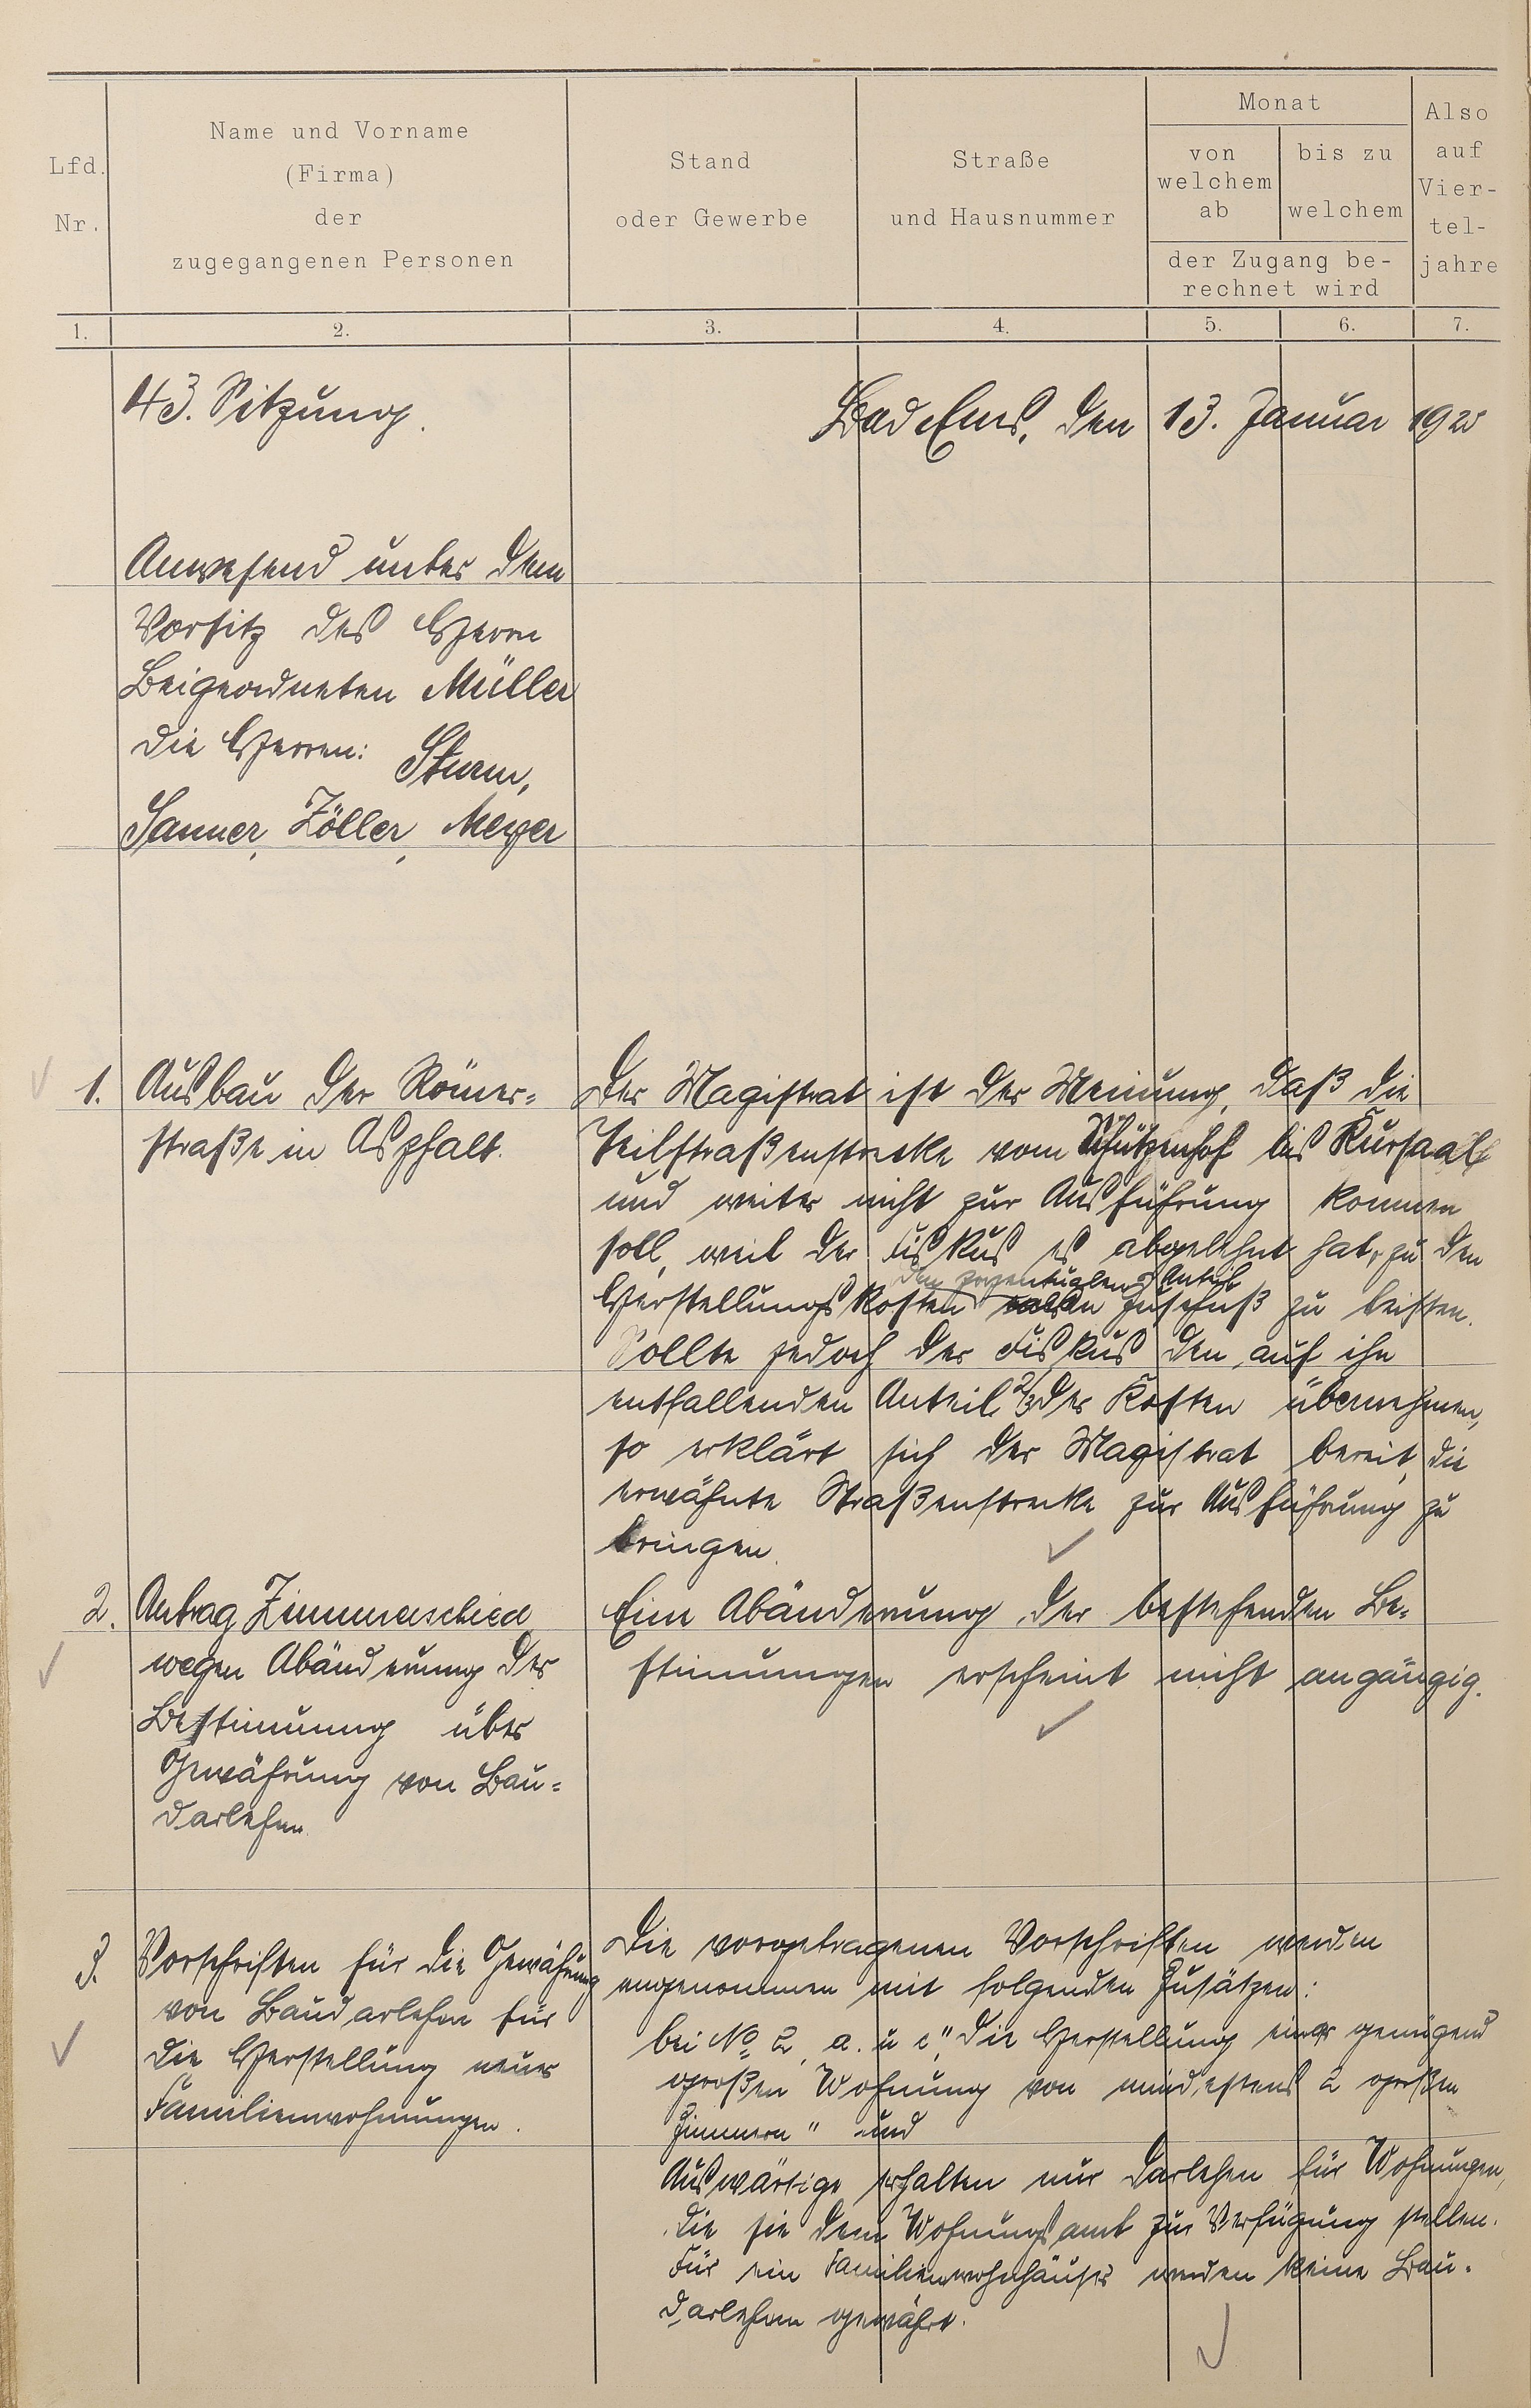 Lfd.
Nr.
Name und Vorname
(Firma)
der
zugegangenen Personen
Stand
oder Gewerbe
Straße
und Hausnummer
Monat
von
welchem
ab
bis zu
welchem
der Zugang be-
rechnet wird
Also
auf
Vier-
tel-
jahre
1. 2. 3. 4. 5. 6. 7.
43. Sitzung.
Bad Ems, den 13. Januar 192
Anwesend unter dem
Vorsitz des Herrn
Beigeordneten Müller
die Herren: Sturm,
Sanner, Zöller, Meyer
1. Ausbau der Römer-
straße in Asphalt.
Der Magistrat ist der Meinung, daß die
Teilstraßenstrecke vom Schützenhof bis Kursaal
und weiter nicht zur Ausführung kommen
soll, weil der Fiskus es abgelehnt hat, zu den
den prozentualen Anteil
Herstellungskosten Zuschuß zu leisten.
Sollte jedoch der Fiskus den auf ihn
entfallenden Anteil 2/3 der Kosten übernehmen,
so erklärt sich der Magistrat bereit, die
erwähnte Straßenstrecke zur Ausführung zu
bringen.
2. Antrag Zimmerschied
wegen Abänderung der
Bestimmung über
Gewährung von Bau-
darlehen.
Eine Abänderung der bestehenden Be-
stimmungen erscheint nicht angängig.
3. Vorschriften für die Gewährung
von Baudarlehen für
die Herstellung neuer
Familienwohnungen.
Die vorgetragenen Vorschriften werden
angenommen mit folgenden Zusätzen:
bei No 2, a. u c „die Herstellung einer genügend
großen Wohnung von mindestens 2 großen
Zimmern" und
Auswärtige erhalten nur Darlehen für Wohnungen,
die sie dem Wohnungsamt zur Verfügung stellen.
Für ein Familienwohnhäuser werden keine Bau-
darlehen gewährt.